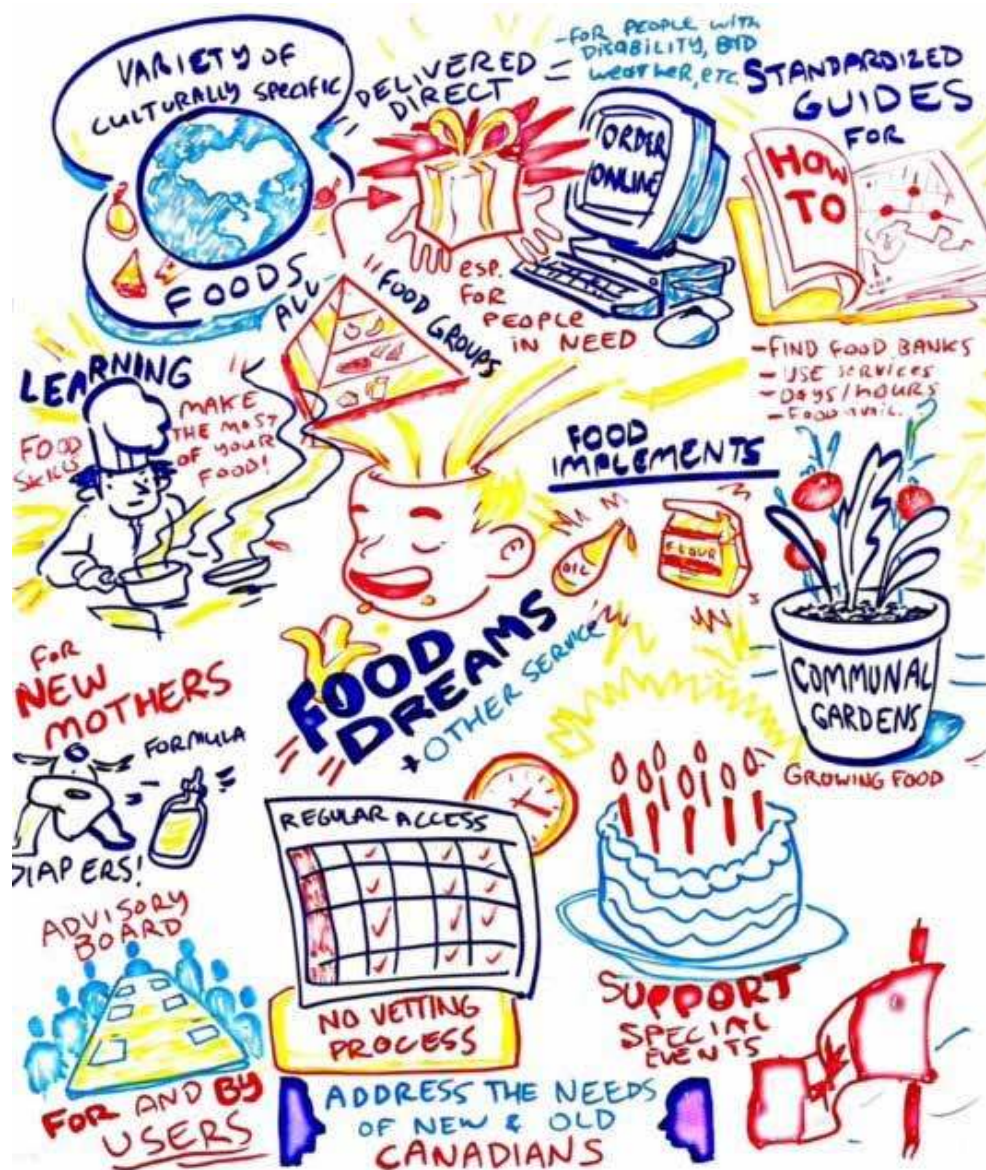 VARIETY OF
CULTURALLY SPECIFIC
FOODS
DELIVERED
DIRECT =
-FOR PEOPLE WITH
DISABILITY, BAD
WEATHER, ETC.
ORDER
ONLINE
esp.
FOR
PEOPLE
IN NEED
STANDARDIZED
GUIDES
FOR
HOW
TO
-FIND FOOD BANKS
- USE SERVICES
- DAYS/HOURS
- FOOD AVAIL.
ALL
FOOD GROUPS
LEARNING
FOOD
SKILLS
MAKE
THE MOST
OF YOUR
FOOD!
FOOD
IMPLEMENTS
OIL
FLOUR
FOOD
DREAMS
+ OTHER SERVICE
COMMUNAL
GARDENS
GROWING FOOD
FOR
NEW
MOTHERS
FORMULA
DIAPERS!
REGULAR ACCESS
NO VETTING
PROCESS
SUPPORT
SPECIAL
EVENTS
ADVISORY
BOARD
FOR AND BY
USERS
ADDRESS THE NEEDS
OF NEW & OLD
CANADIANS